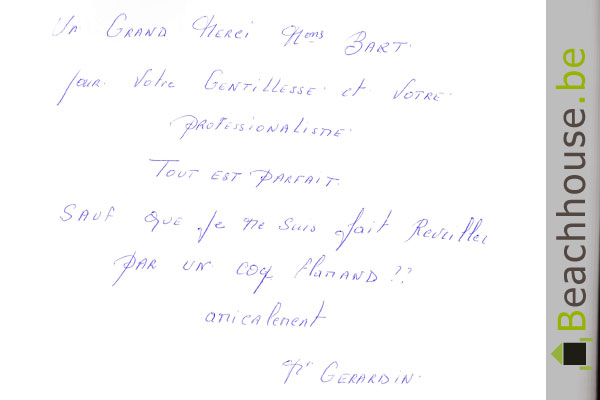 Un Grand Merci Mons Bart.
pour votre Gentillesse et votre
professionalisme.
Tout est parfait.
Sauf que je me suis fait Reveiller
par un coq flamand ??
amicalement
Mr Gerardin.
Beachhouse.be